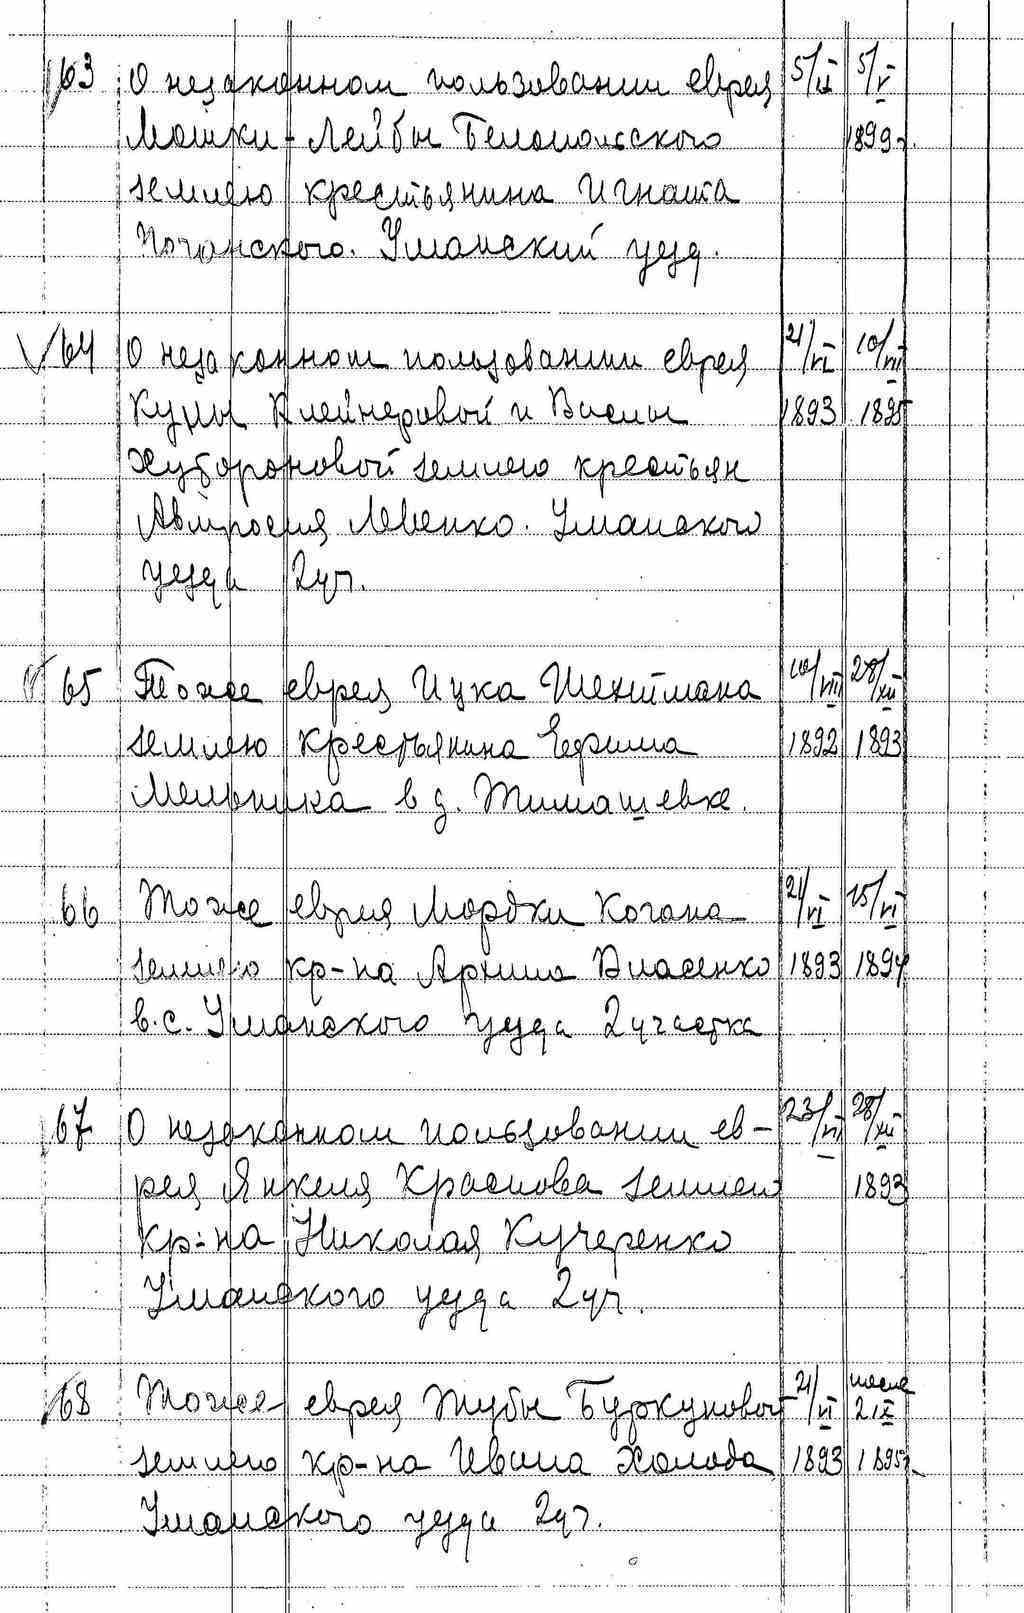 63 О незаконном пользовании еврея 5/IX 5/V
Мошки-Лейбы Белопольского 1899г.
землею крестьянина Игната
Уманский уезд.
64 О незаконном пользовании еврея 21/VI 10/VII
Куны Клейнеровой и Васи 1893 1895
Хуторановой землею крестьян
Амвросия Левенко. Уманского
уезда 2 уч.
65 Тоже еврея Ицка Шехтмана 10/VIII 28/XII
землею крестьянина Ефима 1892 1893
Мельника в д. Тимашевке.
66 Тоже еврея Мордки Когана 21/VI 15/VI
землею кр-на Архипа Власенко 1893 1894
в.с. Уманского уезда 2 участка
67 О незаконном пользовании ев- 23/VII 28/XII
рея Янкеля Краснова землею 1893
кр-на Николая Кучеренко
Уманского уезда 2 уч.
68 Тоже еврея Тубы Буркуновой 21/VI после 2 IX
землею кр-на Ивана Холода 1893 1895г.
Уманского уезда 2 уч.